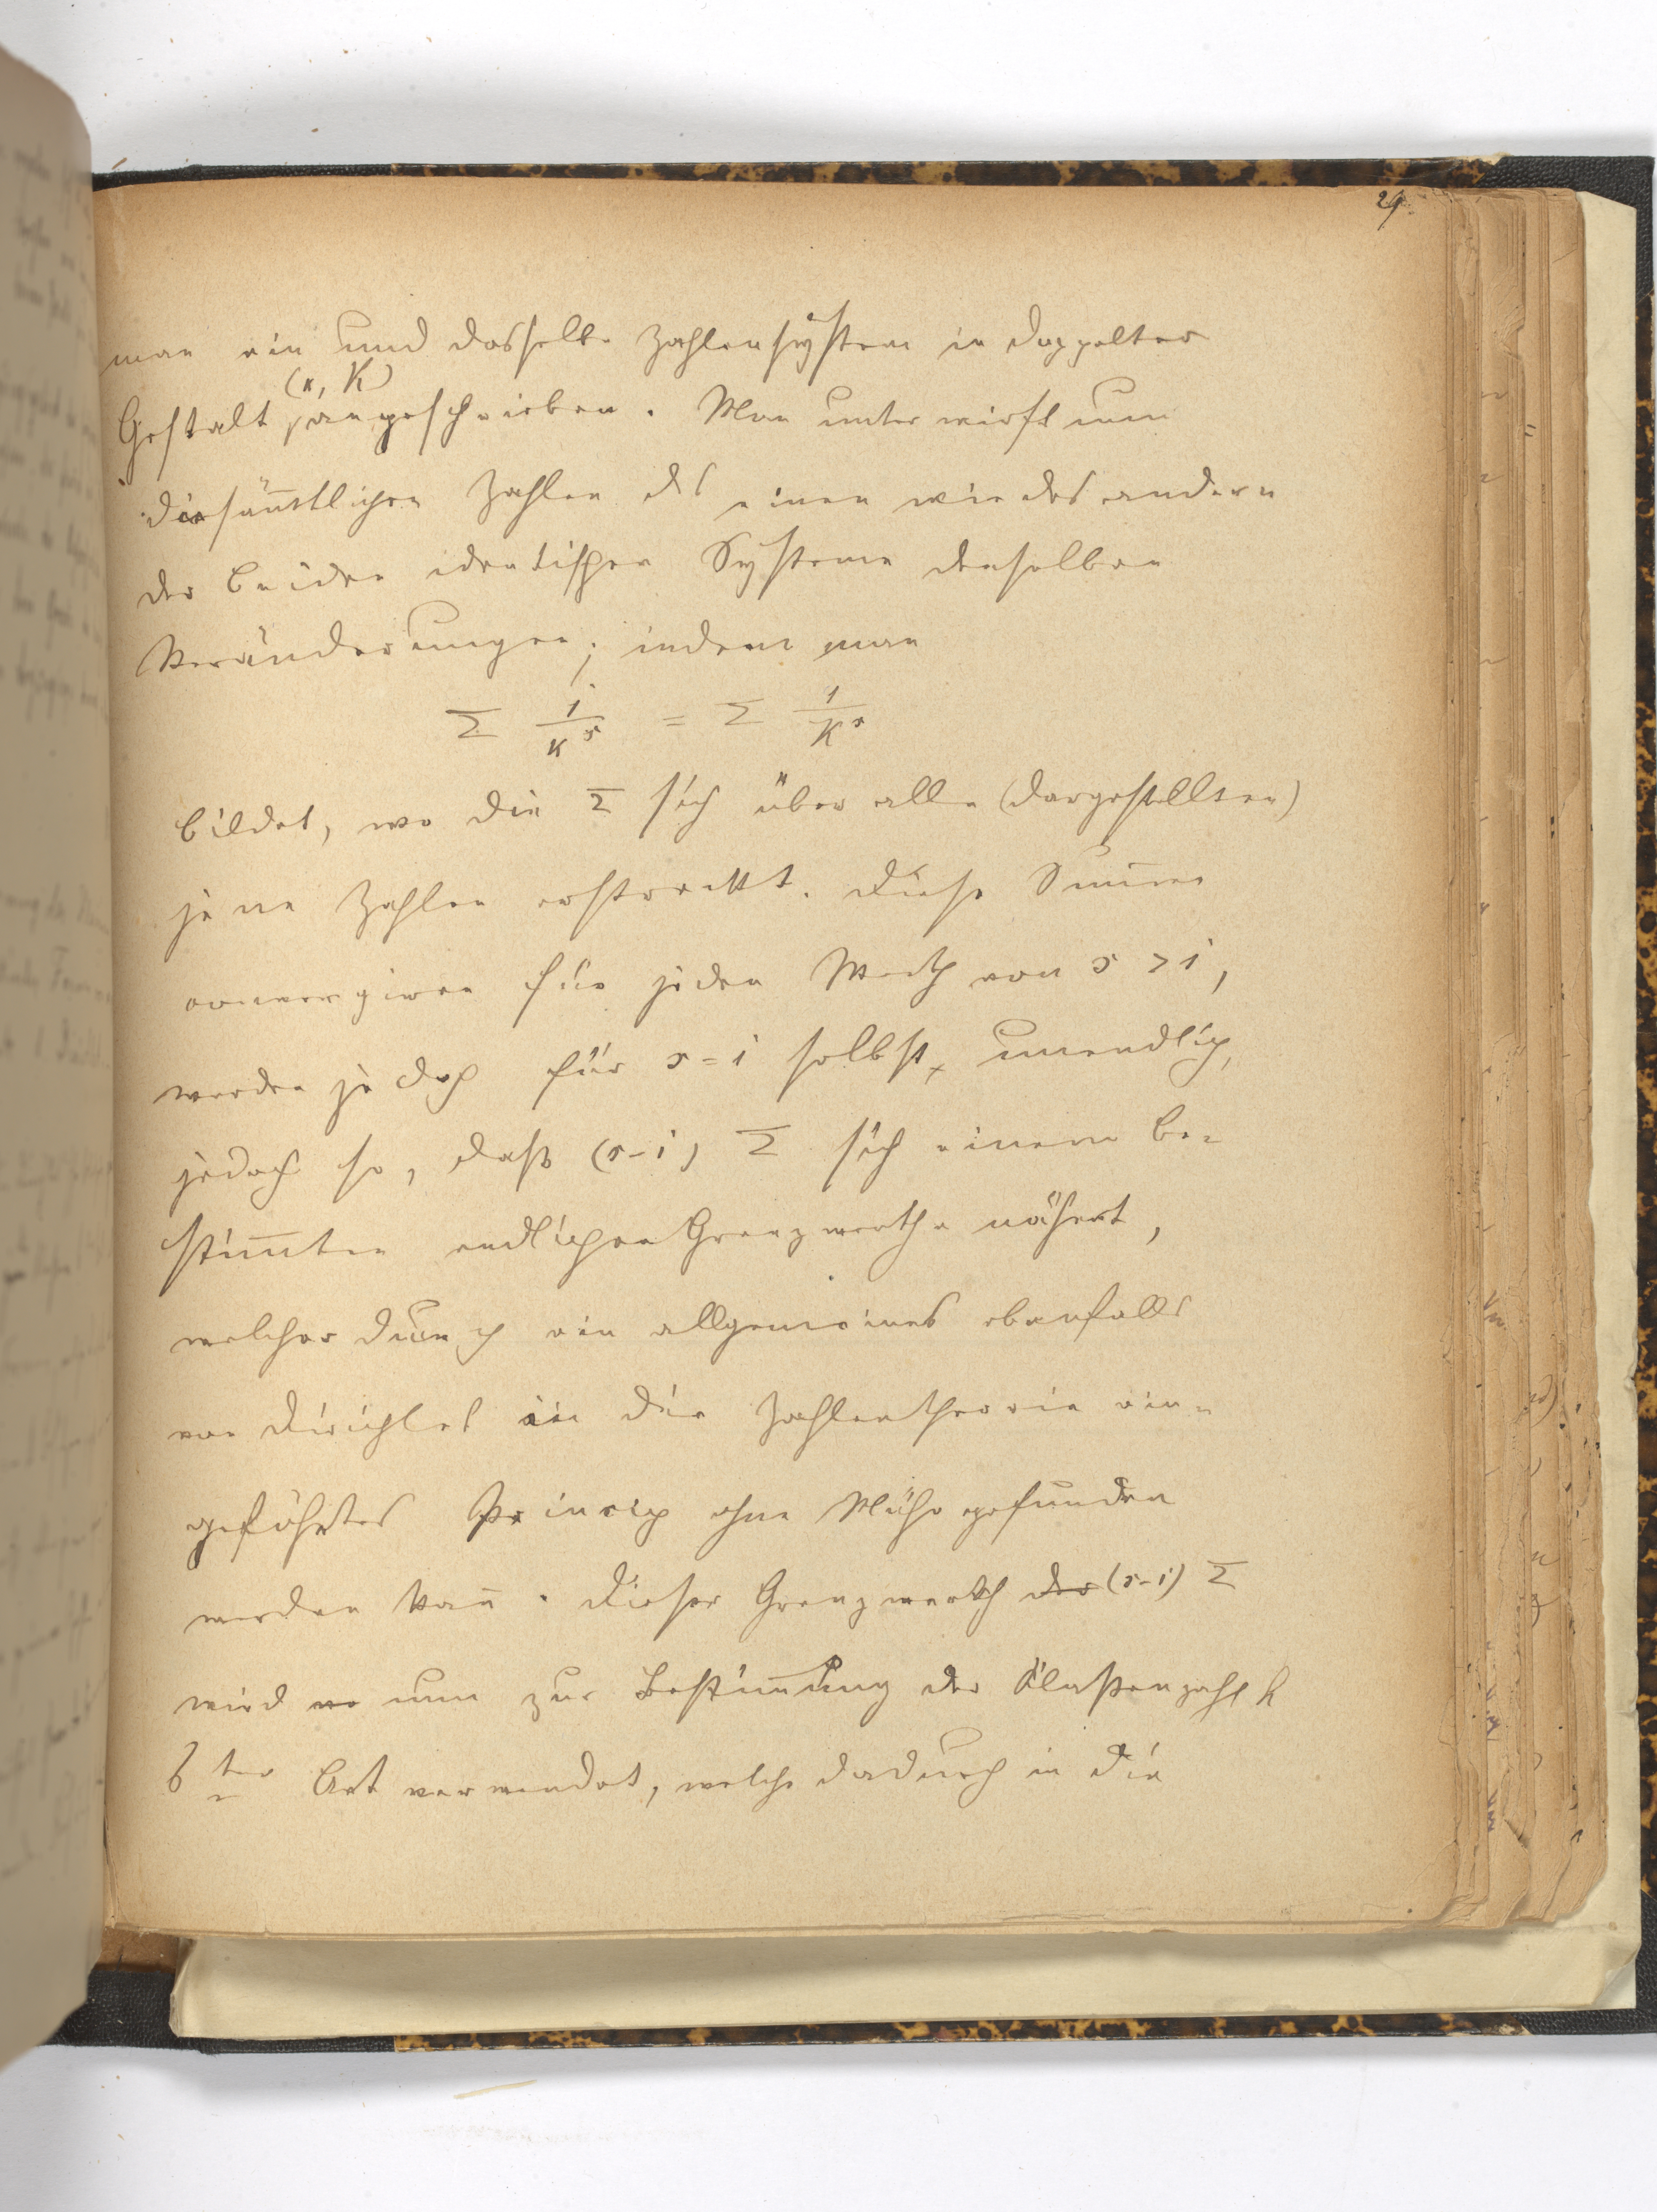 29.
man ein und dasselbe Zahlensystem in doppelter
(κ, K)
Gestalt angeschrieben. Man unterwirft nun
die sämtlichen Zahlen des einen wie des andern
der beiden identischen Systeme denselben
Veränderungen; indem man
Σ 1/κ^s = Σ 1/K^s
bildet, wo die Σ sich über alle (dargestellten)
jene Zahlen erstreckt. Diese Summen
convergiren für jeden Werth von s > 1,
werden jedoch für s = 1 selbst, unendlich,
jedoch so, daß (s-1) Σ sich einem be-
stimmten endlichen Grenzwerthe nähert,
welcher durch ein allgemeines ebenfalls
von Dirichlet in die Zahlentheorie ein-
geführtes Princip ohne Mühe gefunden
werden kann. Dieser Grenzwerth der (s-1) Σ
wird nun zur Bestimmung der Klaßenzahl h
ter Art verwendet, welche dadurch in die